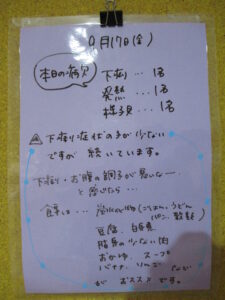 9月17日(金)
本日の病欠
下痢…1名
発熱…1名
様子…1名
下痢症状の子が少ない
ですが 続いています。
下痢・お腹の調子が悪いなー
と感じたら…
食事は… 炭水化物(ごはん、うどん
パン、
豆腐、白身魚
脂身の少ない肉
おかゆ、スープ
バナナ、りんご など
が おススメです。